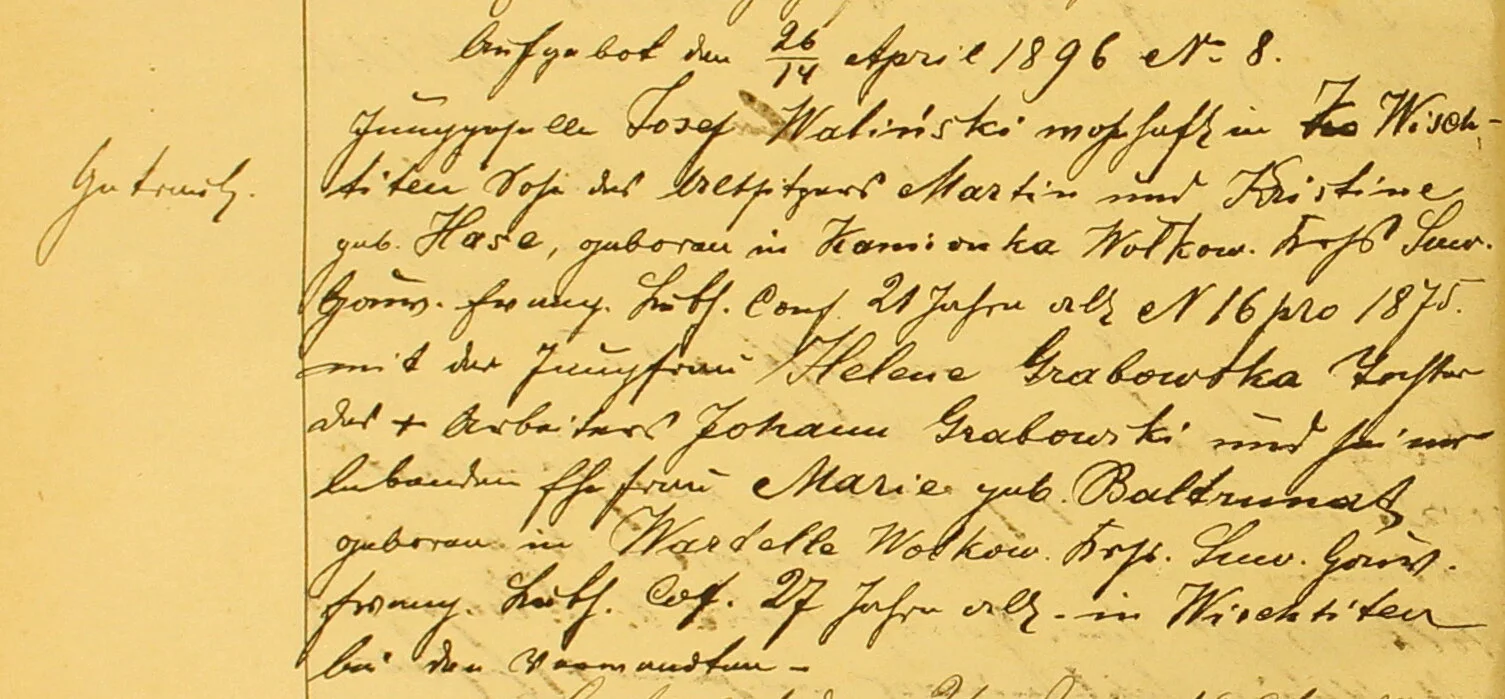 Aufgebot den 26/14 April 1896 No 8.
Junggeselle Josef Waliński wohnhaft in Wisch-
Getraut.
titen Sohn des Martin und Kristine
geb. Hase, geboren in Kamionka Wolkow. Krs Suw.
Gouv. Evang. Luth. Conf. 21 Jahre alt N 16 pro 1875.
mit der Jungfrau Helene Grabowska Tochter
des + Arbeiters Johann Grabowski und seiner
lebenden Ehefrau Marie geb. Baltrunat
geboren in Wartelle Wolkow. Krs. Suw. Gouv.
Evang. Luth. Cof. 27 Jahre alt - in Wischtiten
bei den Verwandten -